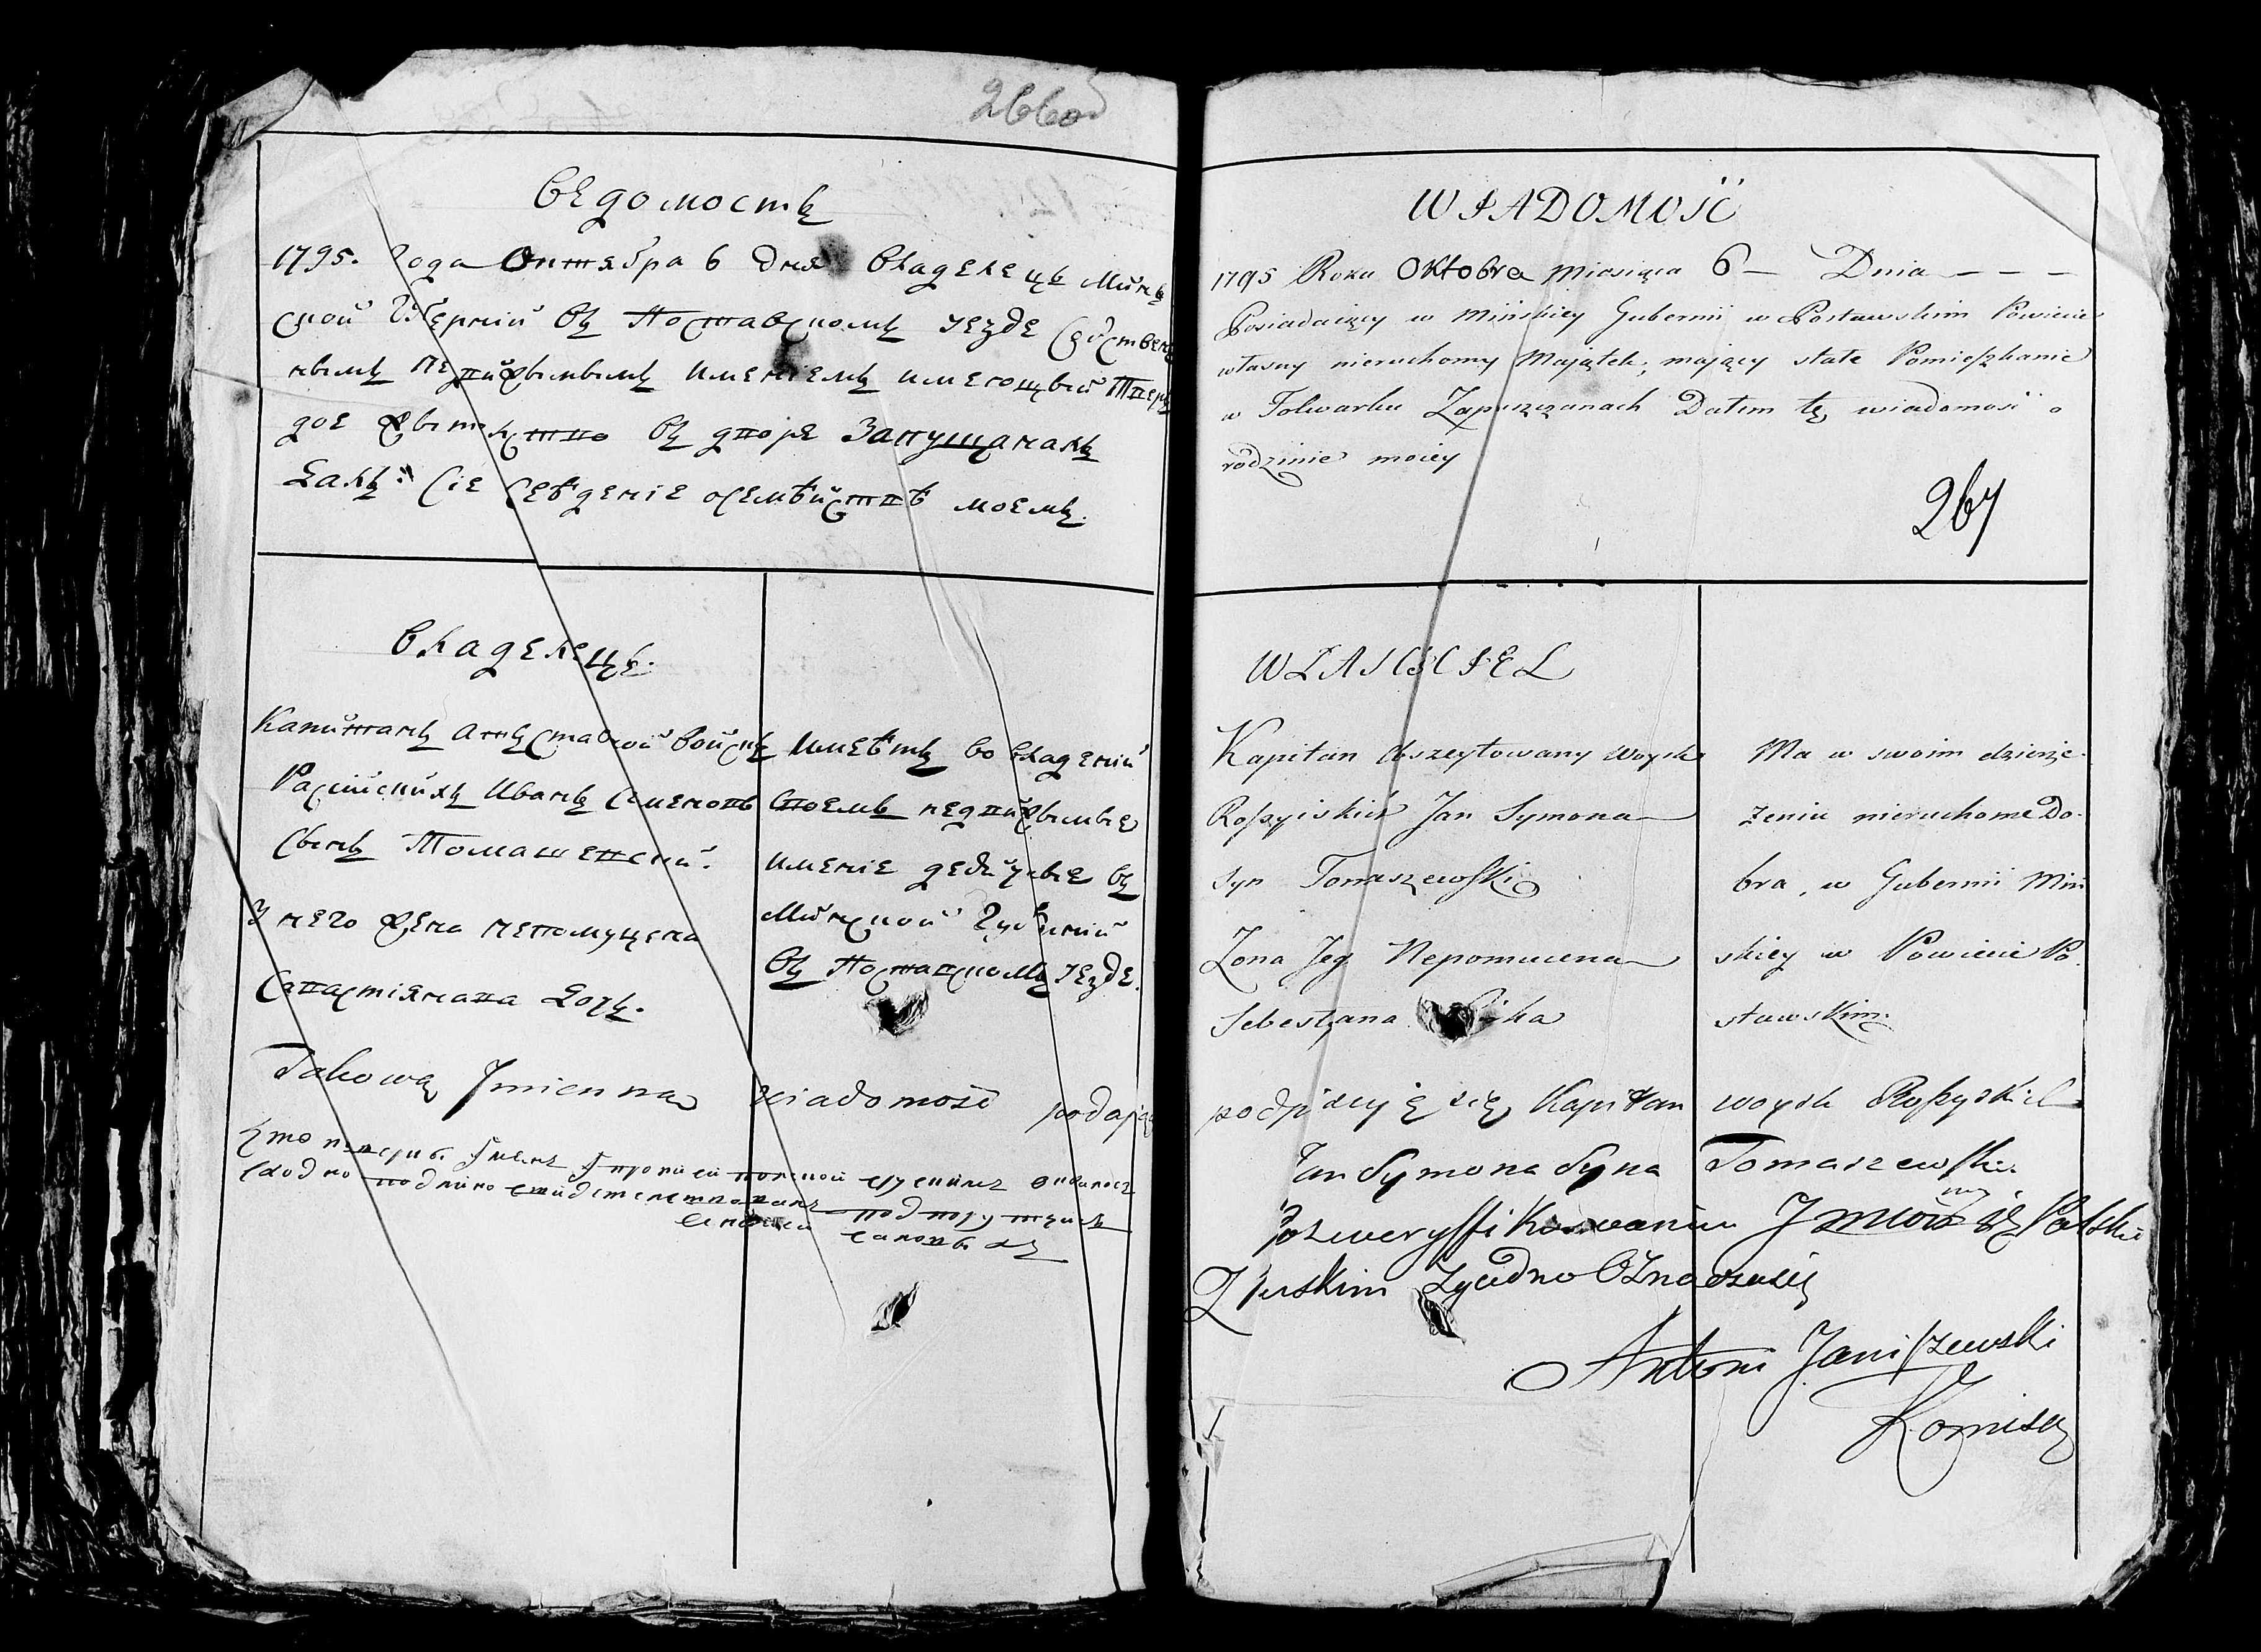 266об
Ведомость
1795. года Октября 6 дня Владелецъ Минъ
ской Губерний въ Поставскомъ уезде Собствен
нымъ недвижымымъ имениемъ имеющый Твер
дое жытелство въ дворе Запущанахъ
Далъ: Сіе Сведеніе осемѣйствѣ моемъ.
Владелецъ.
Капитанъ атъставной войскъ
Расийскихъ Иванъ Семеновъ
Сынъ Томашевский.
У него жена непомуцена
Савастиянава Дочь.
Имеѣтъ во владений
Своемъ недвижымые
имение дедичные въ
Минской Губерний
въ Поставскомъ уезде.
Takową Jmienną wiadomość podając
WIADOMOŚĆ
1795 Roku Oktobra Miesiąca 6 — Dnia — — —
Posiadaiący w Mińskiey Gubernii w Postawskim Powiecie
własny nieruchomy Majątek; mający stałe Pomieszkanie
w Folwarku Zapuszczanach Dałem tę wiadomość o
rodzinie moiey
267
WŁAŚCICIEL
Kapitan Abszeytowany Woysk
Rossyiskich Jan Symona
syn Tomaszewski
Żona Jeg Nepomucena
Sebestyana
Ma w swoim dzierże-
żeniu nieruchome Do-
bra, w Gubernii Miń
skiey w Powiecie Po
stawskim.
podpisuyę się Kapitan woysk Rossyskich
Jan Symona Syna Tomaszewski
Po zweryffikowaniu Polski
Z ruskim zgadno
Antoni Janiszewski
Komisa